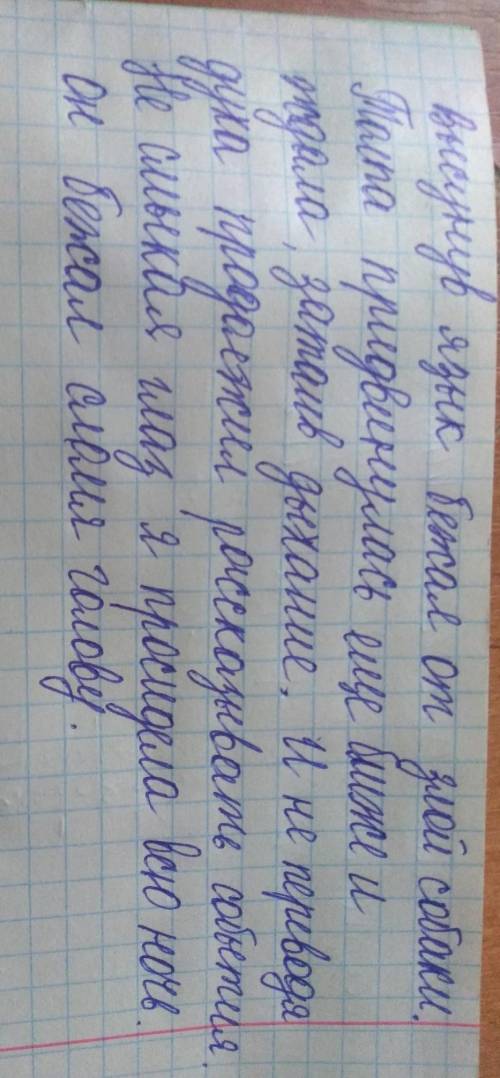 высунув язык бежал от злой собаки.
Тата придвинулась еще ближе и
ждала, затаив дыхание. И не переводя
духа продолжил рассказывать события.
Не смыкая глаз я просидела всю ночь.
он бежал сломя голову.